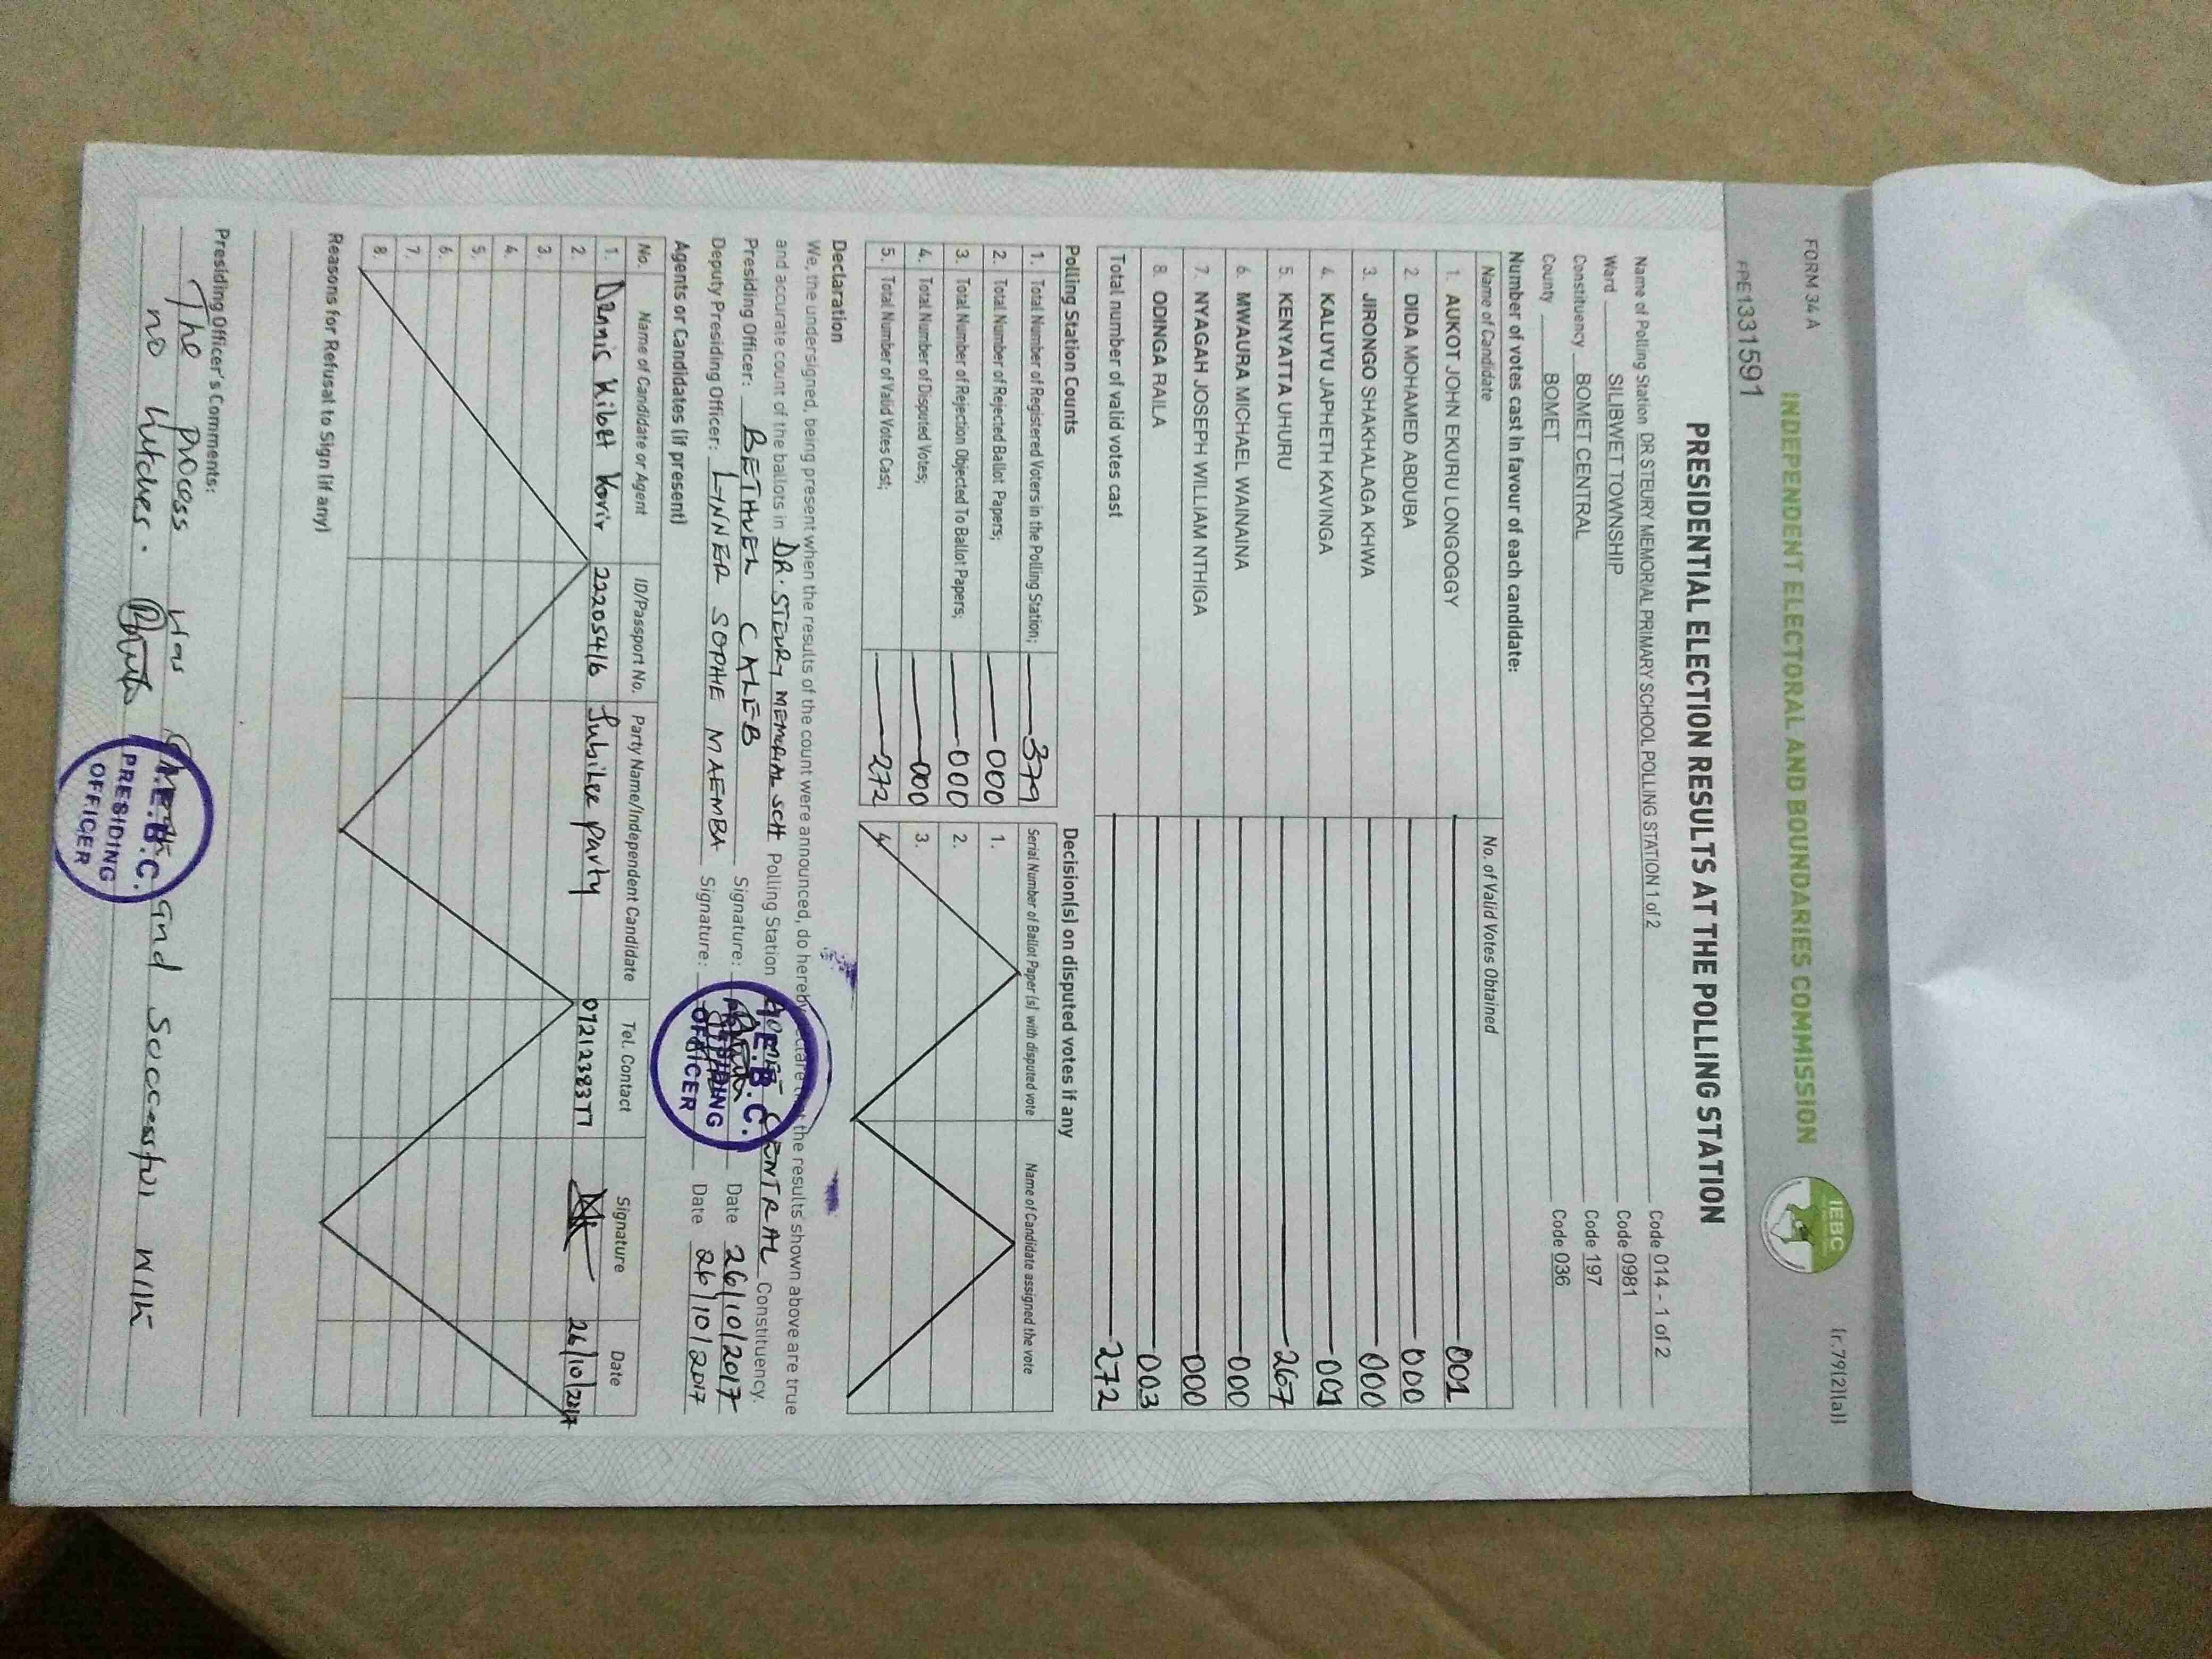 FORM 34 A
(r.79(2)(a))
INDEPENDENT ELECTORAL AND BOUNDARIES COMMISSION
IEBC
FPE1331591
PRESIDENTIAL ELECTION RESULTS AT THE POLLING STATION
Name of Polling Station DR STEURY MEMORIAL PRIMARY SCHOOL POLLING STATION 1 of 2 Code 014 - 1 of 2
Ward SILIBWET TOWNSHIP Code 0981
Constituency BOMET CENTRAL Code 197
County BOMET Code 036
Number of votes cast in favour of each candidate:
Name of Candidate No. of Valid Votes Obtained
1. AUKOT JOHN EKURU LONGOGGY 001
2. DIDA MOHAMED ABDUBA 000
3. JIRONGO SHAKHALAGA KHWA 000
4. KALUYU JAPHETH KAVINGA 001
5. KENYATTA UHURU 267
6. MWAURA MICHAEL WAINAINA 000
7. NYAGAH JOSEPH WILLIAM NTHIGA 000
8. ODINGA RAILA 003
Total number of valid votes cast 272
Polling Station Counts Decision(s) on disputed votes if any
1. Total Number of Registered Voters in the Polling Station; 379 Serial Number of Ballot Paper (s) with disputed vote Name of Candidate assigned the vote
2. Total Number of Rejected Ballot Papers; 000 1.
3. Total Number of Rejection Objected To Ballot Papers; 000 2.
4. Total Number of Disputed Votes; 000 3.
5. Total Number of Valid Votes Cast; 272 4
Declaration
We, the undersigned, being present when the results of the count were announced, do hereby declare that the results shown above are true
and accurate count of the ballots in DR. STEURY MEMORIAL SCH Polling Station BOMET CENTRAL Constituency.
Presiding Officer: BETHUEL CALEB Signature: Date 26/10/2017
Deputy Presiding Officer: LYNNER SOPHE MAEMBA Signature: Date 26/10/2017
I.E.B.C.
PRESIDING
OFFICER
Agents or Candidates (if present)
No. Name of Candidate or Agent ID/Passport No. Party Name/Independent Candidate Tel. Contact Signature Date
1. Dennis Kibet Korir 22205416 Jubilee Party 0721238377 26/10/2017
2
3.
4.
5.
6.
7.
8.
Reasons for Refusal to Sign (if any)
Presiding Officer's Comments:
The process was and successful with
no hitches.
I.E.B.C.
PRESIDING
OFFICER